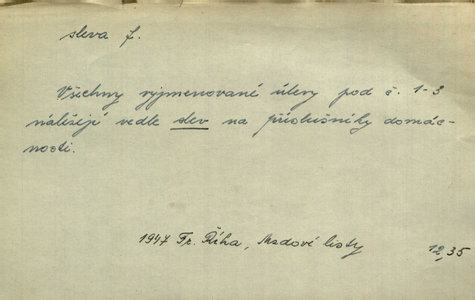 sleva f.
Všechny vyjmenované úlevy pod č. 1-3
náležejí vedle slev na příslušníky domác-
nosti.
1947 Fr. Říha, Mzdové listy
12, 35